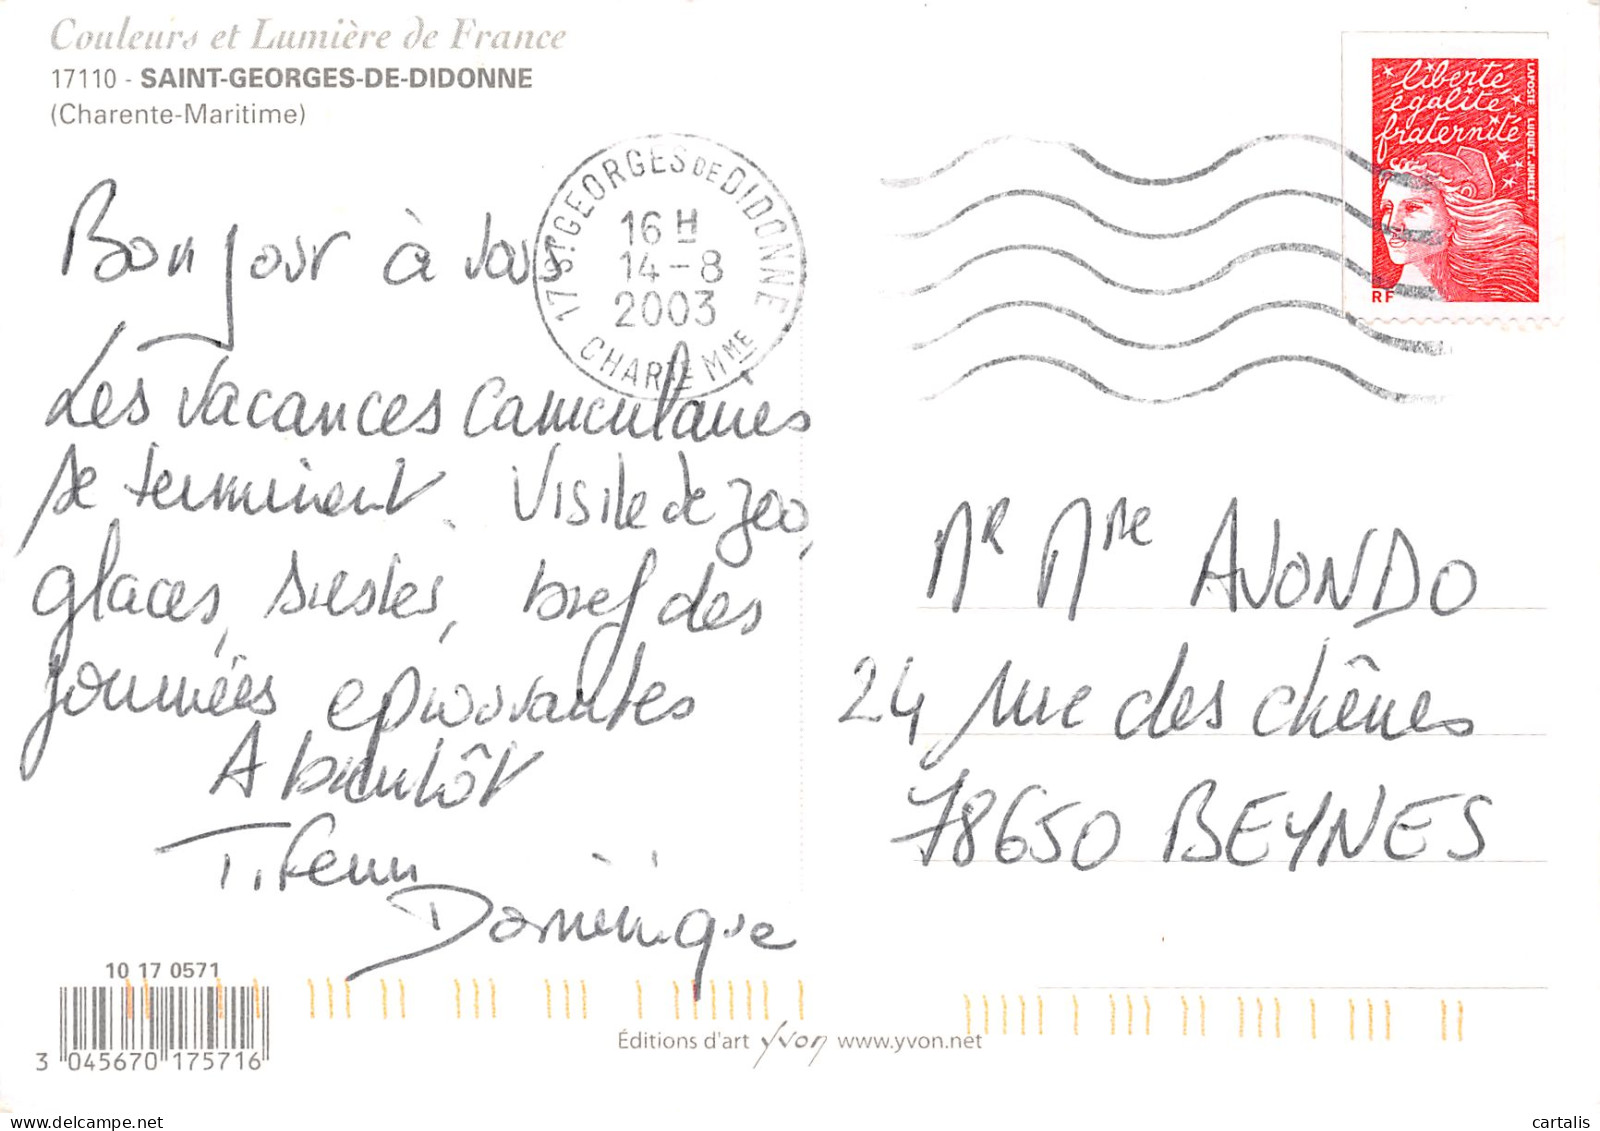 Couleurs et Lumière de France
17110 - SAINT-GEORGES-DE-DIDONNE
(Charente-Maritime)
liberté
égalité
fraternité
LAPOSTE LUQUET-JUMELET
RF
17 ST GEORGES DE DIDONNE
16 H
14-8
2003
CHARTE MME
Bonjour à vous
Les vacances caniculaires
se terminent. Visite de zoo,
glaces, siestes, bref des
journées eprouvantes
A bientôt
Dominique
Mr Mme AVONDO
24 rue des chênes
78650 BEYNES
10 17 0571
3 045670 175716
Éditions d'art yvon www.yvon.net
cartalis